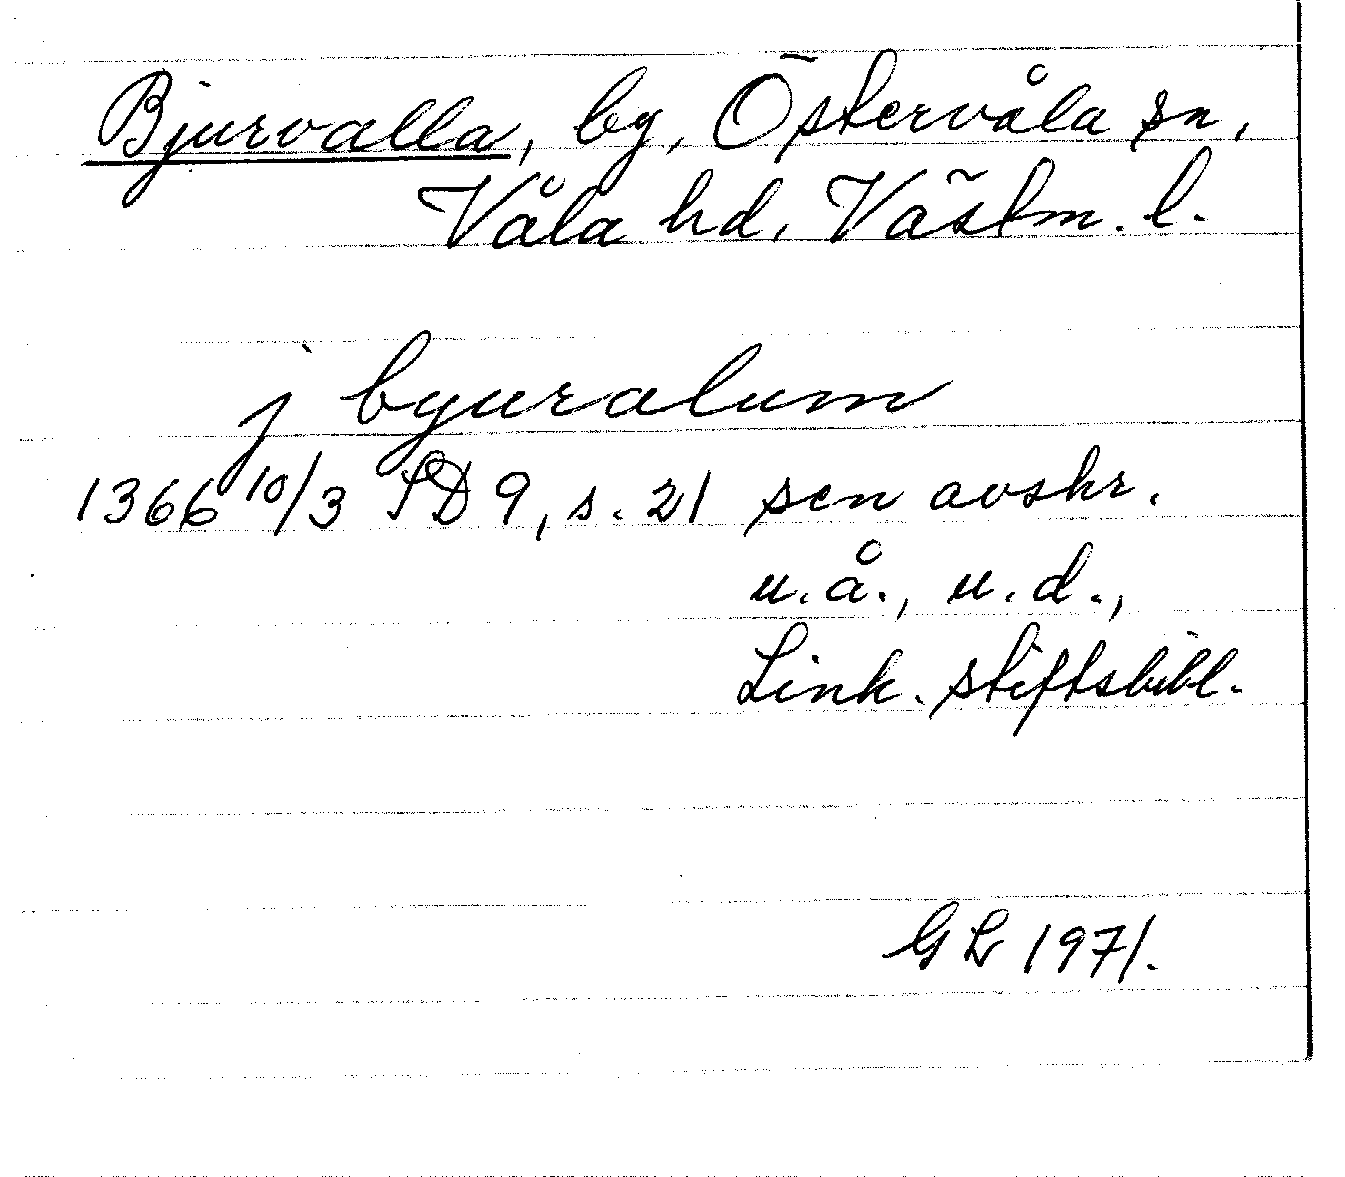 Bjurvalla, by, Östervåla sn,
Våla hd, Västm. l.
j byuralum
1366 10/3 SD 9, s. 21 sen avskr.
u.å., u.d.,
Link. stiftsbibl.
GL 1971.